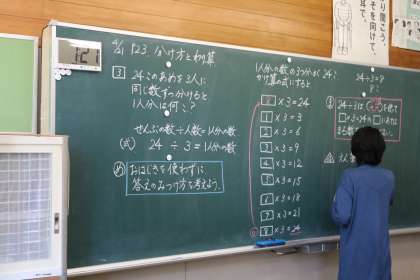 1:21
4/21 123. 分け方とわり算
3 24このあめを3人に
同じ数ずつ分けると
1人分は何こ?
ぜんぶの数÷人数=1人分の数
(式) 24 ÷ 3 = 1人分の数
め おはじきを使わずに
答えのみつけ方を考えよう。
1人分の数の3つ分が24こ
かけ算の式にすると
□×3=24
1×3=3
2×3=6
3×9=9
4×3=12
5×3=15
6×3=18
7×3=21
8×3=24
24÷3=8
8こ
24÷3は
□×3=24の□にあては
まる数